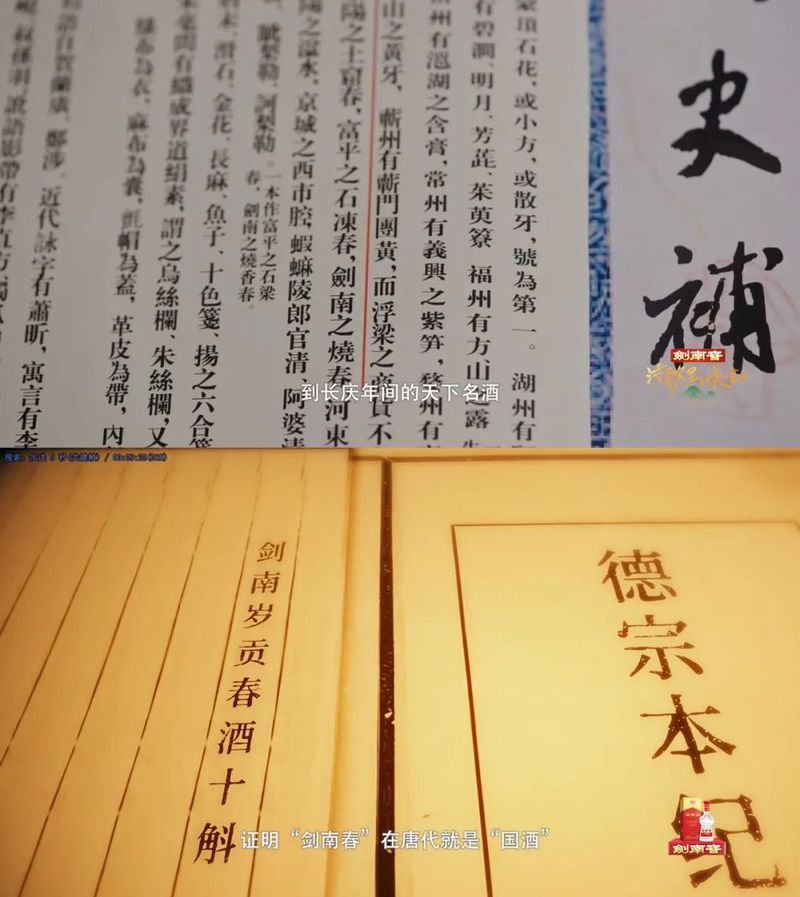 史補
蒙頂石花，或小方，或散牙，號為第一。湖州有
有碧澗、明月、芳蕋、茱萸簝，福州有方山之露
州有㴩湖之含膏，常州有義興之紫笋，婺州有
山之黃牙，蘄州有蘄門團黃，而浮梁之商貨不
陽之土窟春，富平之石凍春，劍南之燒春，河東
陽之湓水，京城之西市腔，蝦䗫陵郎官清、阿婆清
毗梨勒、訶梨勒。
一本作富平之石梁
春，劍南之燒香春。
末、滑石、金花、長麻、魚子、十色箋，揚之六合箋
毫間有織成界道絹素，謂之烏絲欄、朱絲欄，又
布為衣，麻布為囊，氈帽為蓋，革皮為帶，內
語自賀蘭廣、鄭涉。近代詠字有蕭昕，寓言有李
叔孫羽，詼語影帶有李直方
劍南春
到长庆年间的天下名酒
德宗本纪
剑南岁贡春酒十斛
劍南春
证明“剑南春”在唐代就是“国酒”